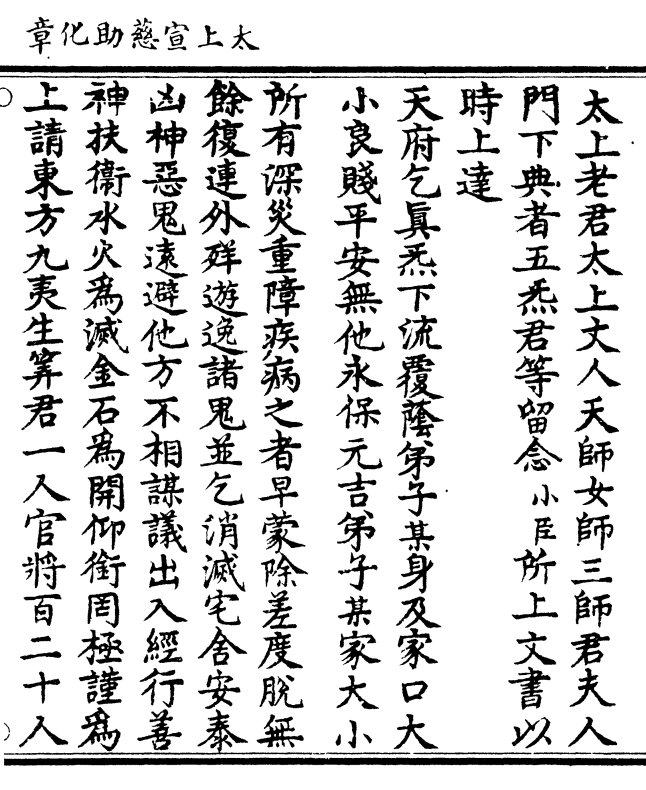 太上宣慈助化章
太上老君太上丈人天師女師三師君夫人
門下典者五炁君等留念小臣所上文書以
時上達
天府乞眞炁下流覆蔭弟子某身及家口大
小良賤平安無他永保元吉弟子某家大小
所有深災重障疾病之者早蒙除差度脫無
餘復連外殃遊逸諸鬼並乞消滅宅舍安泰
凶神惡鬼遠避他方不相謀議出入經行善
神扶衞水火爲滅金石爲開仰銜罔極謹爲
上請東方九夷生筭君一人官將百二十人